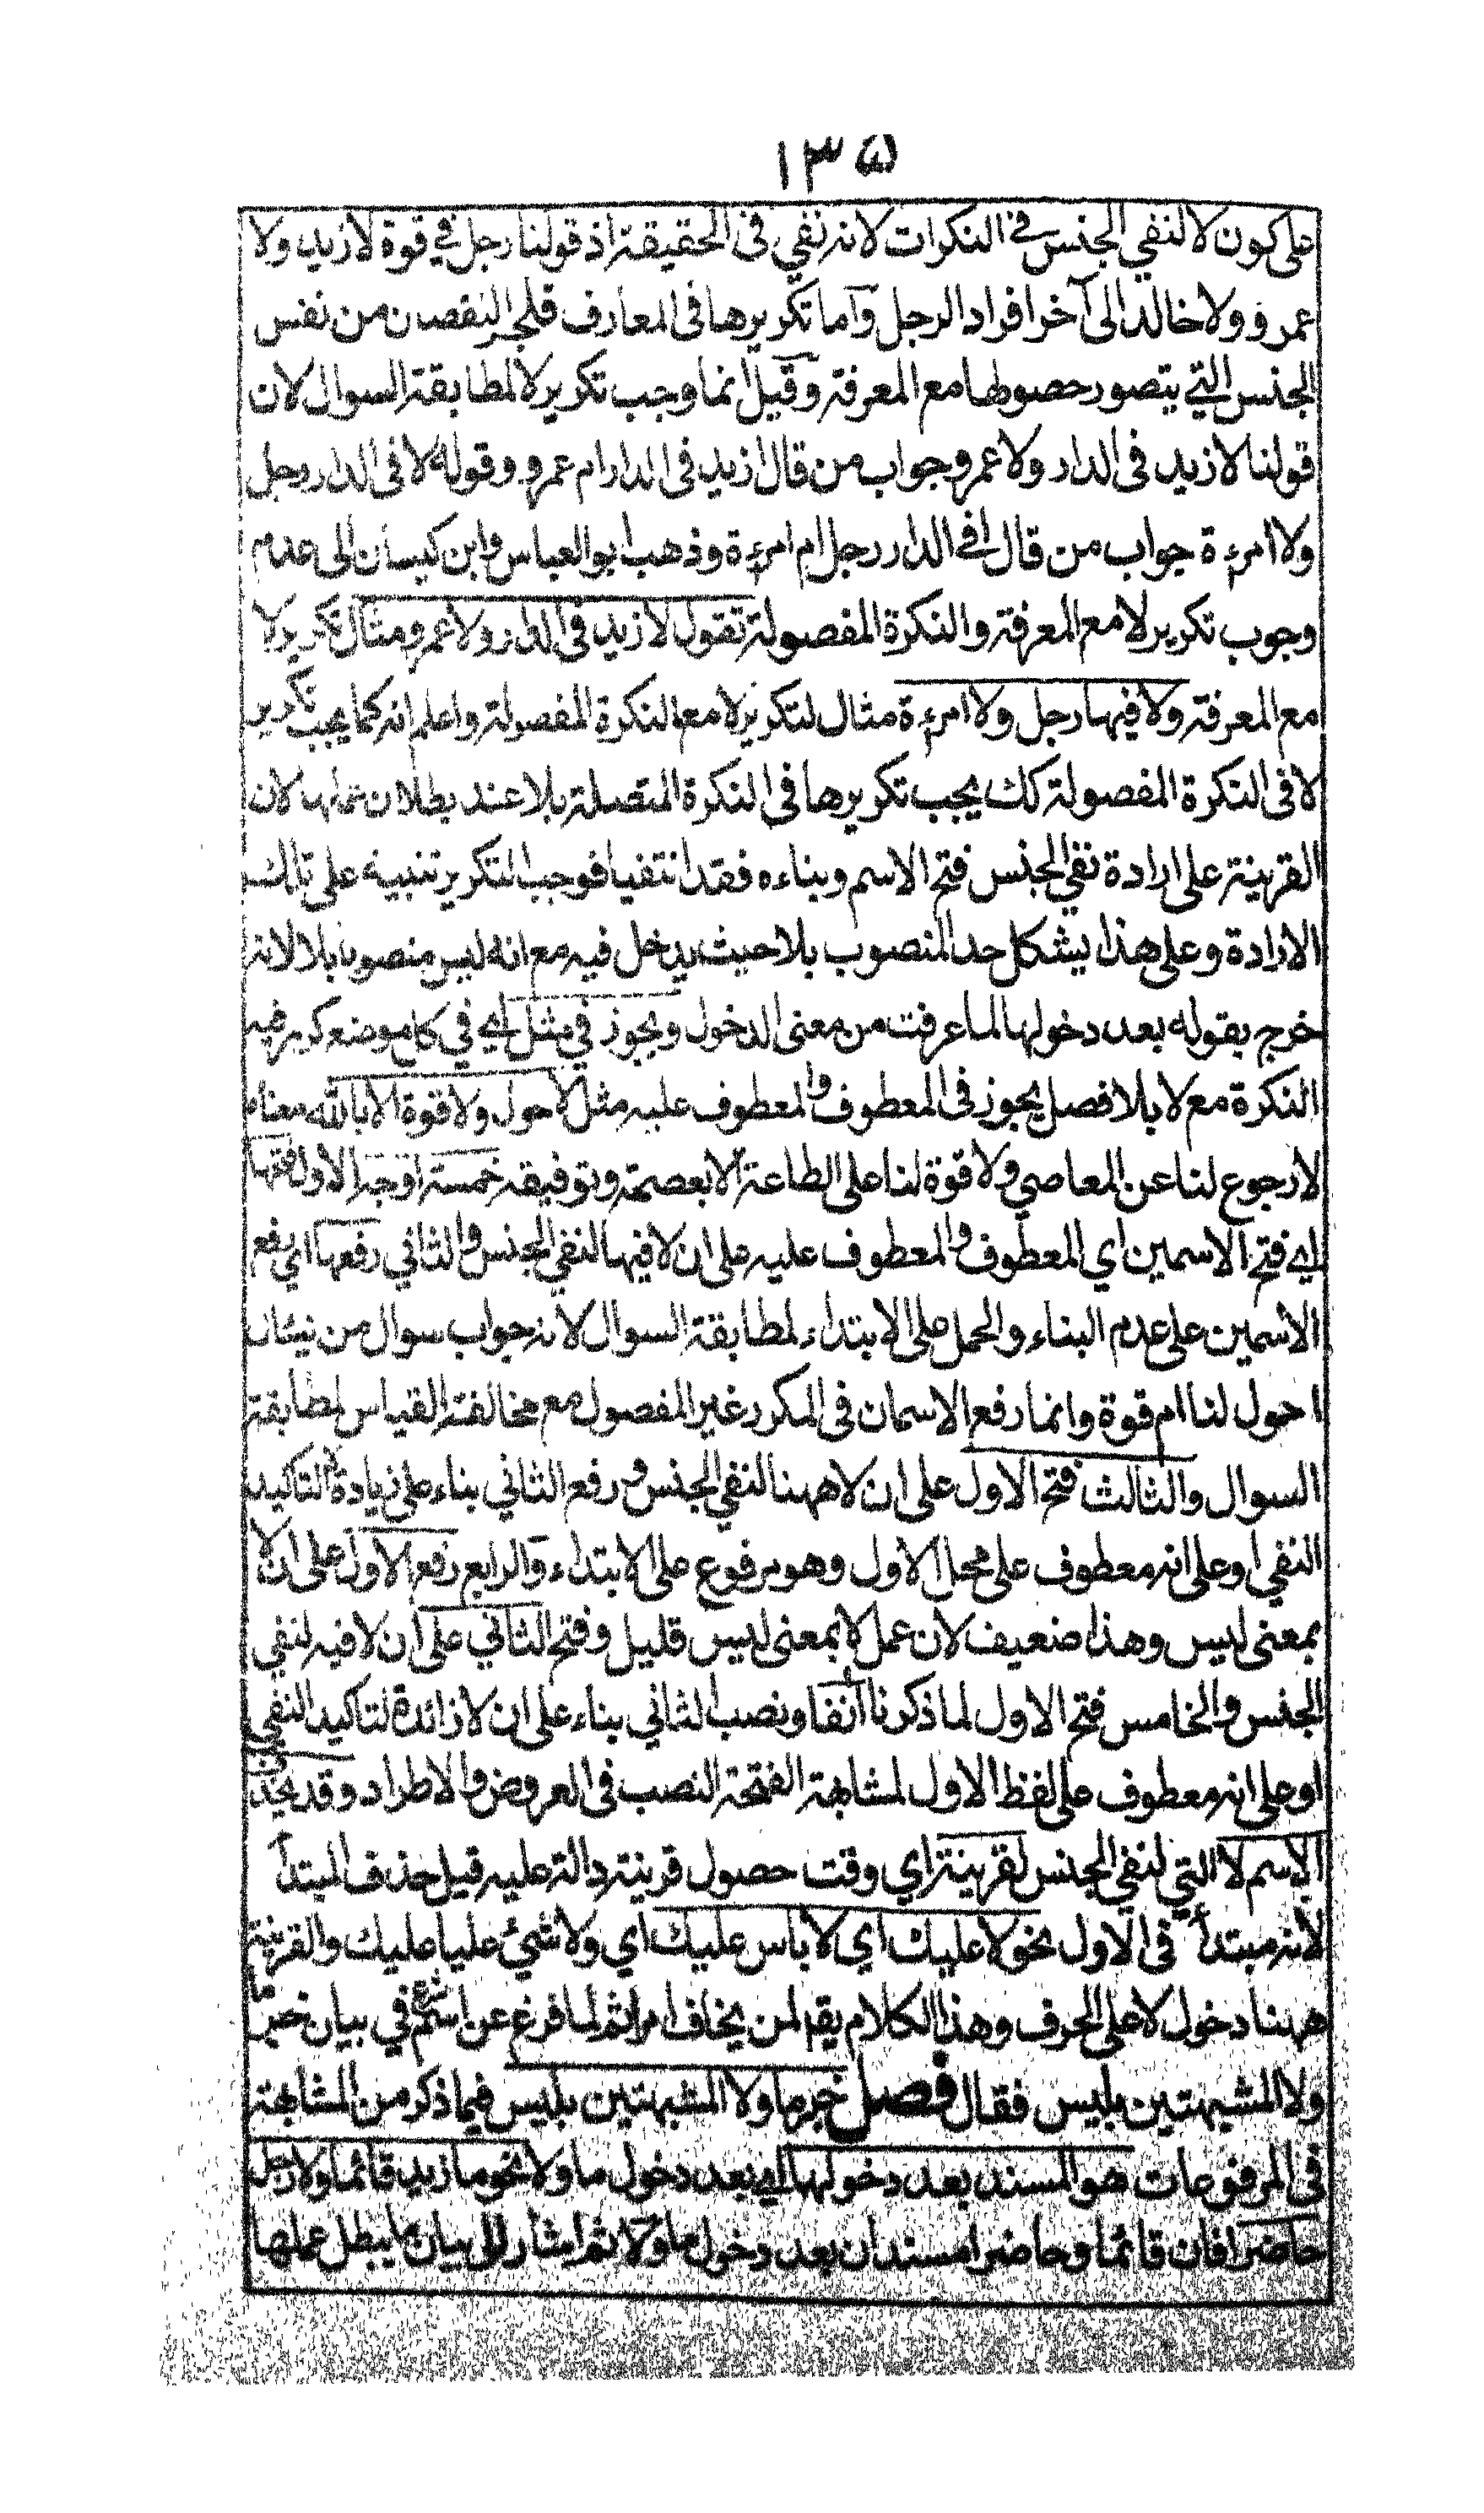 ١٣٥
على كون لا لنفي الجنس في النكرات لانه نفي في الحقيقة اذ قولنا رجل في قوة لا زيد ولا
عمرو ولا خالد الى آخر افراد الرجل وآما تكريرها في المعارف فلجبر النقصان من نفس
الجنس التي يتصور حصولها مع المعرفة وقيل انما وجب تكرير لا لمطابقة السوال لان
قولنا لا زيد في الدار ولا عمرو جواب من قال ازيد في الدار ام عمرو وقوله لا في الدار رجل
ولا امرءة جواب من قال افي الدار رجل ام امرءة وذهب ابو العباس وابن كيسان الى عدم
وجوب تكرير لا مع المعرفة والنكرة المفصولة تقول لا زيد في الدار ولا عمرو مثال تكرير لا
مع المعرفة ولا فيها رجل ولا امرءة مثال لتكرير لا مع النكرة المفصولة واعلم انه كما يجب تكرير
لا في النكرة المفصولة كك يجب تكريرها في النكرة المتصلة بلا عند بطلان عملها لان
القرينة على ارادة نفي الجنس فتح الاسم وبناءه فقد انتفيا فوجب التكرير تنبيه على تلك
الارادة وعلى هذا يشكل حد المنصوب بلا حيث يدخل فيه مع انه ليس منصوبا بلا لانه
خرج بقوله بعد دخولها لما عرفت من معنى الدخول ويجوز في مثل اي في كل موضع كرر فيه
النكرة مع لا بلا فصل يجوز في المعطوف والمعطوف عليه مثل لا حول ولا قوة الا بالله معناه
لا رجوع لنا عن المعاصي ولا قوة لنا على الطاعة الا بعصمته وتوفيقه خمسة اوجه الاول فتحهما
اي فتح الاسمين اي المعطوف والمعطوف عليه على ان لا فيها لنفي الجنس والثاني رفعهما اي رفع
الاسمين على عدم البناء والحمل على الابتداء لمطابقة السوال لانه جواب سوال من
احول لنا ام قوة وانما رفع الاسمان في المكرر غير المفصول مع مخالفة القياس لمطابقة
السوال والثالث فتح الاول على ان لا ههنا لنفي الجنس ورفع الثاني بناء على زيادة لا لتاكيد
النفي او على انه معطوف على محل الاول وهو مرفوع على الابتداء والرابع رفع الاول على ان لا
بمعنى ليس وهذا ضعيف لان عمل لا بمعنى ليس قليل وفتح الثاني على ان لا فيه لنفي
الجنس والخامس فتح الاول لما ذكرنا آنفا ونصب الثاني بناء على ان لا زائدة لتاكيد النفي
او على انه معطوف على لفظ الاول لمشابهة الفتحة النصب في العروض والاطراد وقد يحذف
الاسم لا التي لنفي الجنس لقرينة اي وقت حصول قرينة دالة عليه قيل حذف المبتدأ
لانه مبتدأ في الاول نحو لا عليك اي لا باس عليك اي ولا شيئ عليا عليك والقرينة
ههنا دخول لا على الحرف وهذا الكلام يقم لمن يخاف امرا ثم لما فرغ عن اسم شرع في بيان خبر ما
ولا المشبهتين بليس فقال فصل خبر ما ولا المشبهتين بليس فيما ذكر من المشابهة
في المرفوعات هو المسند بعد دخولهما اي بعد دخول ما ولا نحو ما زيد قائما ولا رجل
حاضرا فان قائما وحاضرا مسندان بعد دخول ما ولا ثم اشار الى بيان ما يبطل عملهما